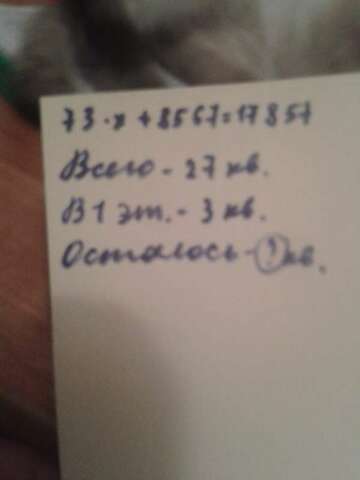 73·x+8567=17857
Всего - 27 кв.
В 1 эт. - 3 кв.
Осталось - ? кв.